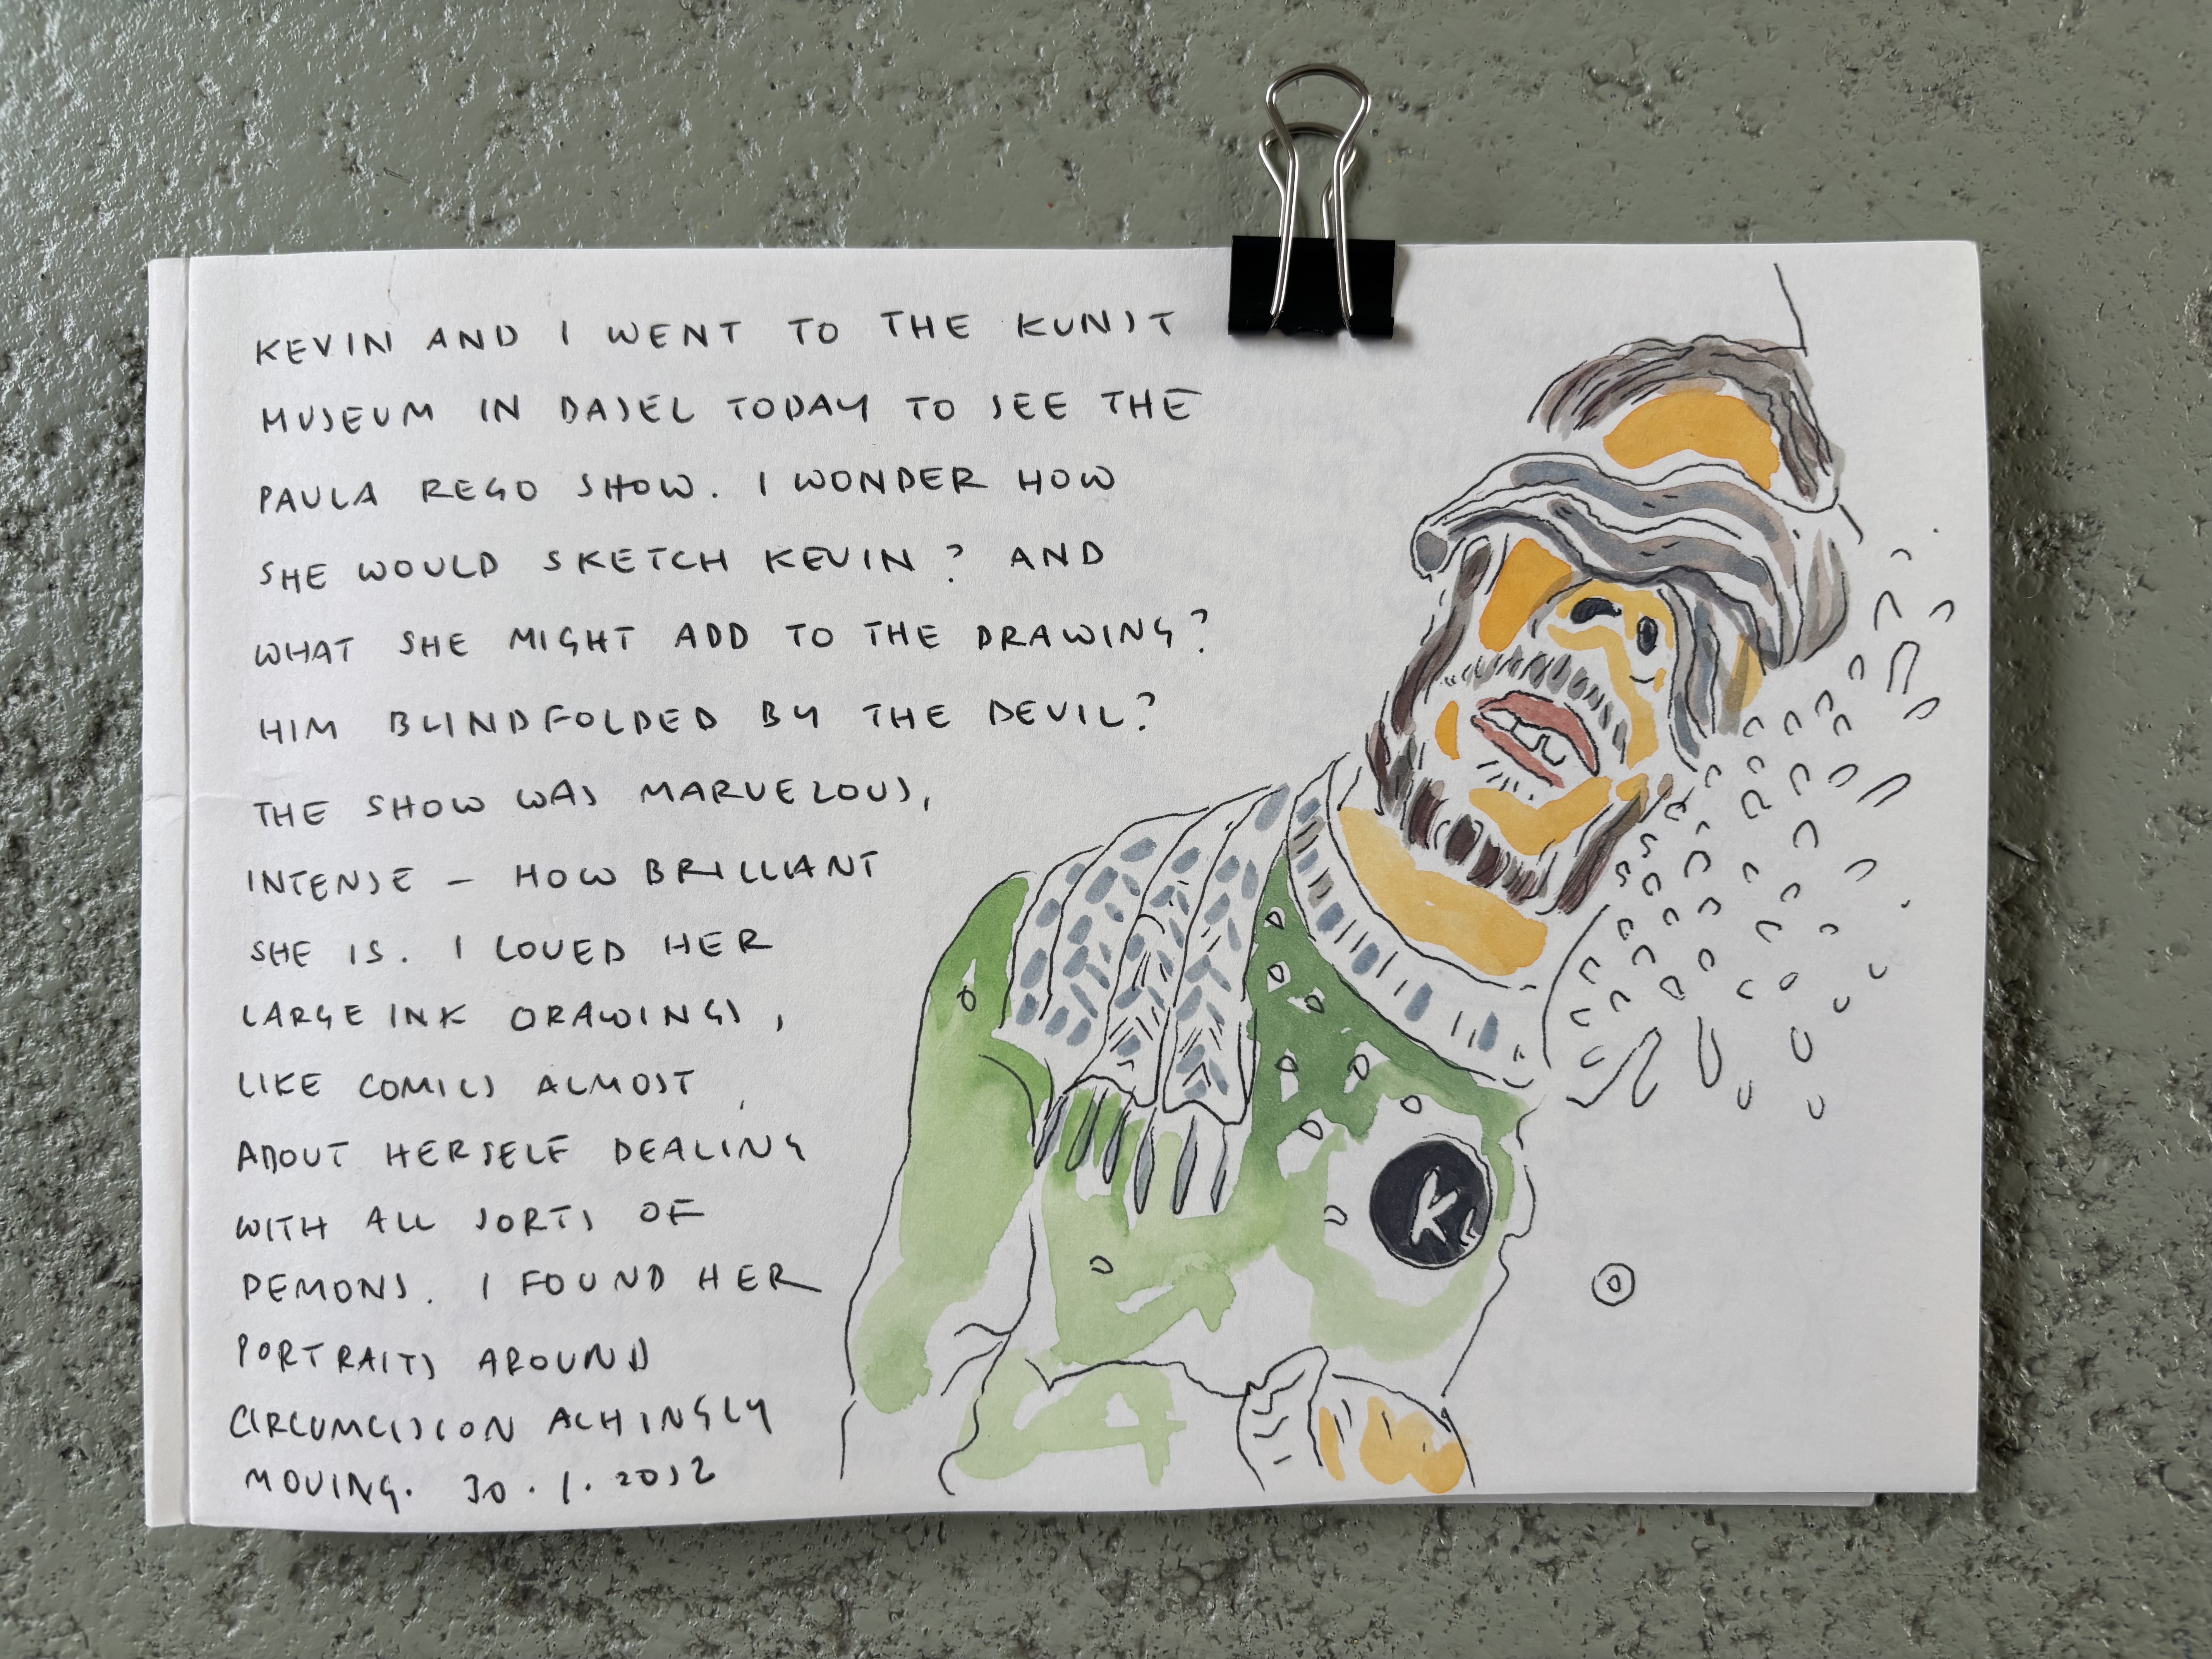 KEVIN AND I WENT TO THE KUNST
MUSEUM IN BASEL TODAY TO SEE THE
PAULA REGO SHOW. I WONDER HOW
SHE WOULD SKETCH KEVIN? AND
WHAT SHE MIGHT ADD TO THE DRAWING?
HIM BLINDFOLDED BY THE DEVIL?
THE SHOW WAS MARVELOUS,
INTENSE – HOW BRILLIANT
SHE IS. I LOVED HER
LARGE INK DRAWINGS,
LIKE COMICS ALMOST,
ABOUT HERSELF DEALING
WITH ALL SORTS OF
DEMONS. I FOUND HER
PORTRAITS AROUND
CIRCUMCISION ACHINGLY
MOVING. 30.1.
K